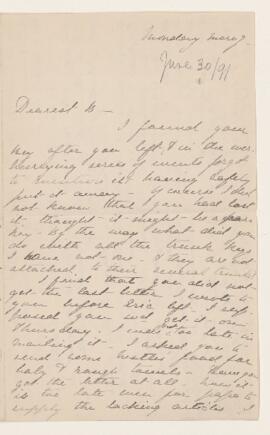 Monday morng.
June 30/91
Dearest B—
I found your
key after you left, & in the wor-
rying series of events forgot
to mention it, having safely
put it away — Of course I did
not know that you had lost
it — thought it might be a spare
key. By the way what did you
do with all the trunk keys
I have not one. & they are not
attached to their several trunks.
I find that you did not
get the last letter I wrote to
you before we left. I sup-
posed you wd. get it on
Thursday. I was too late in
mailing it. I asked you to
send some food for
baby & rough towels — have you
got the letter at all. Now it
is too late even for papa to
supply the lacking articles. I